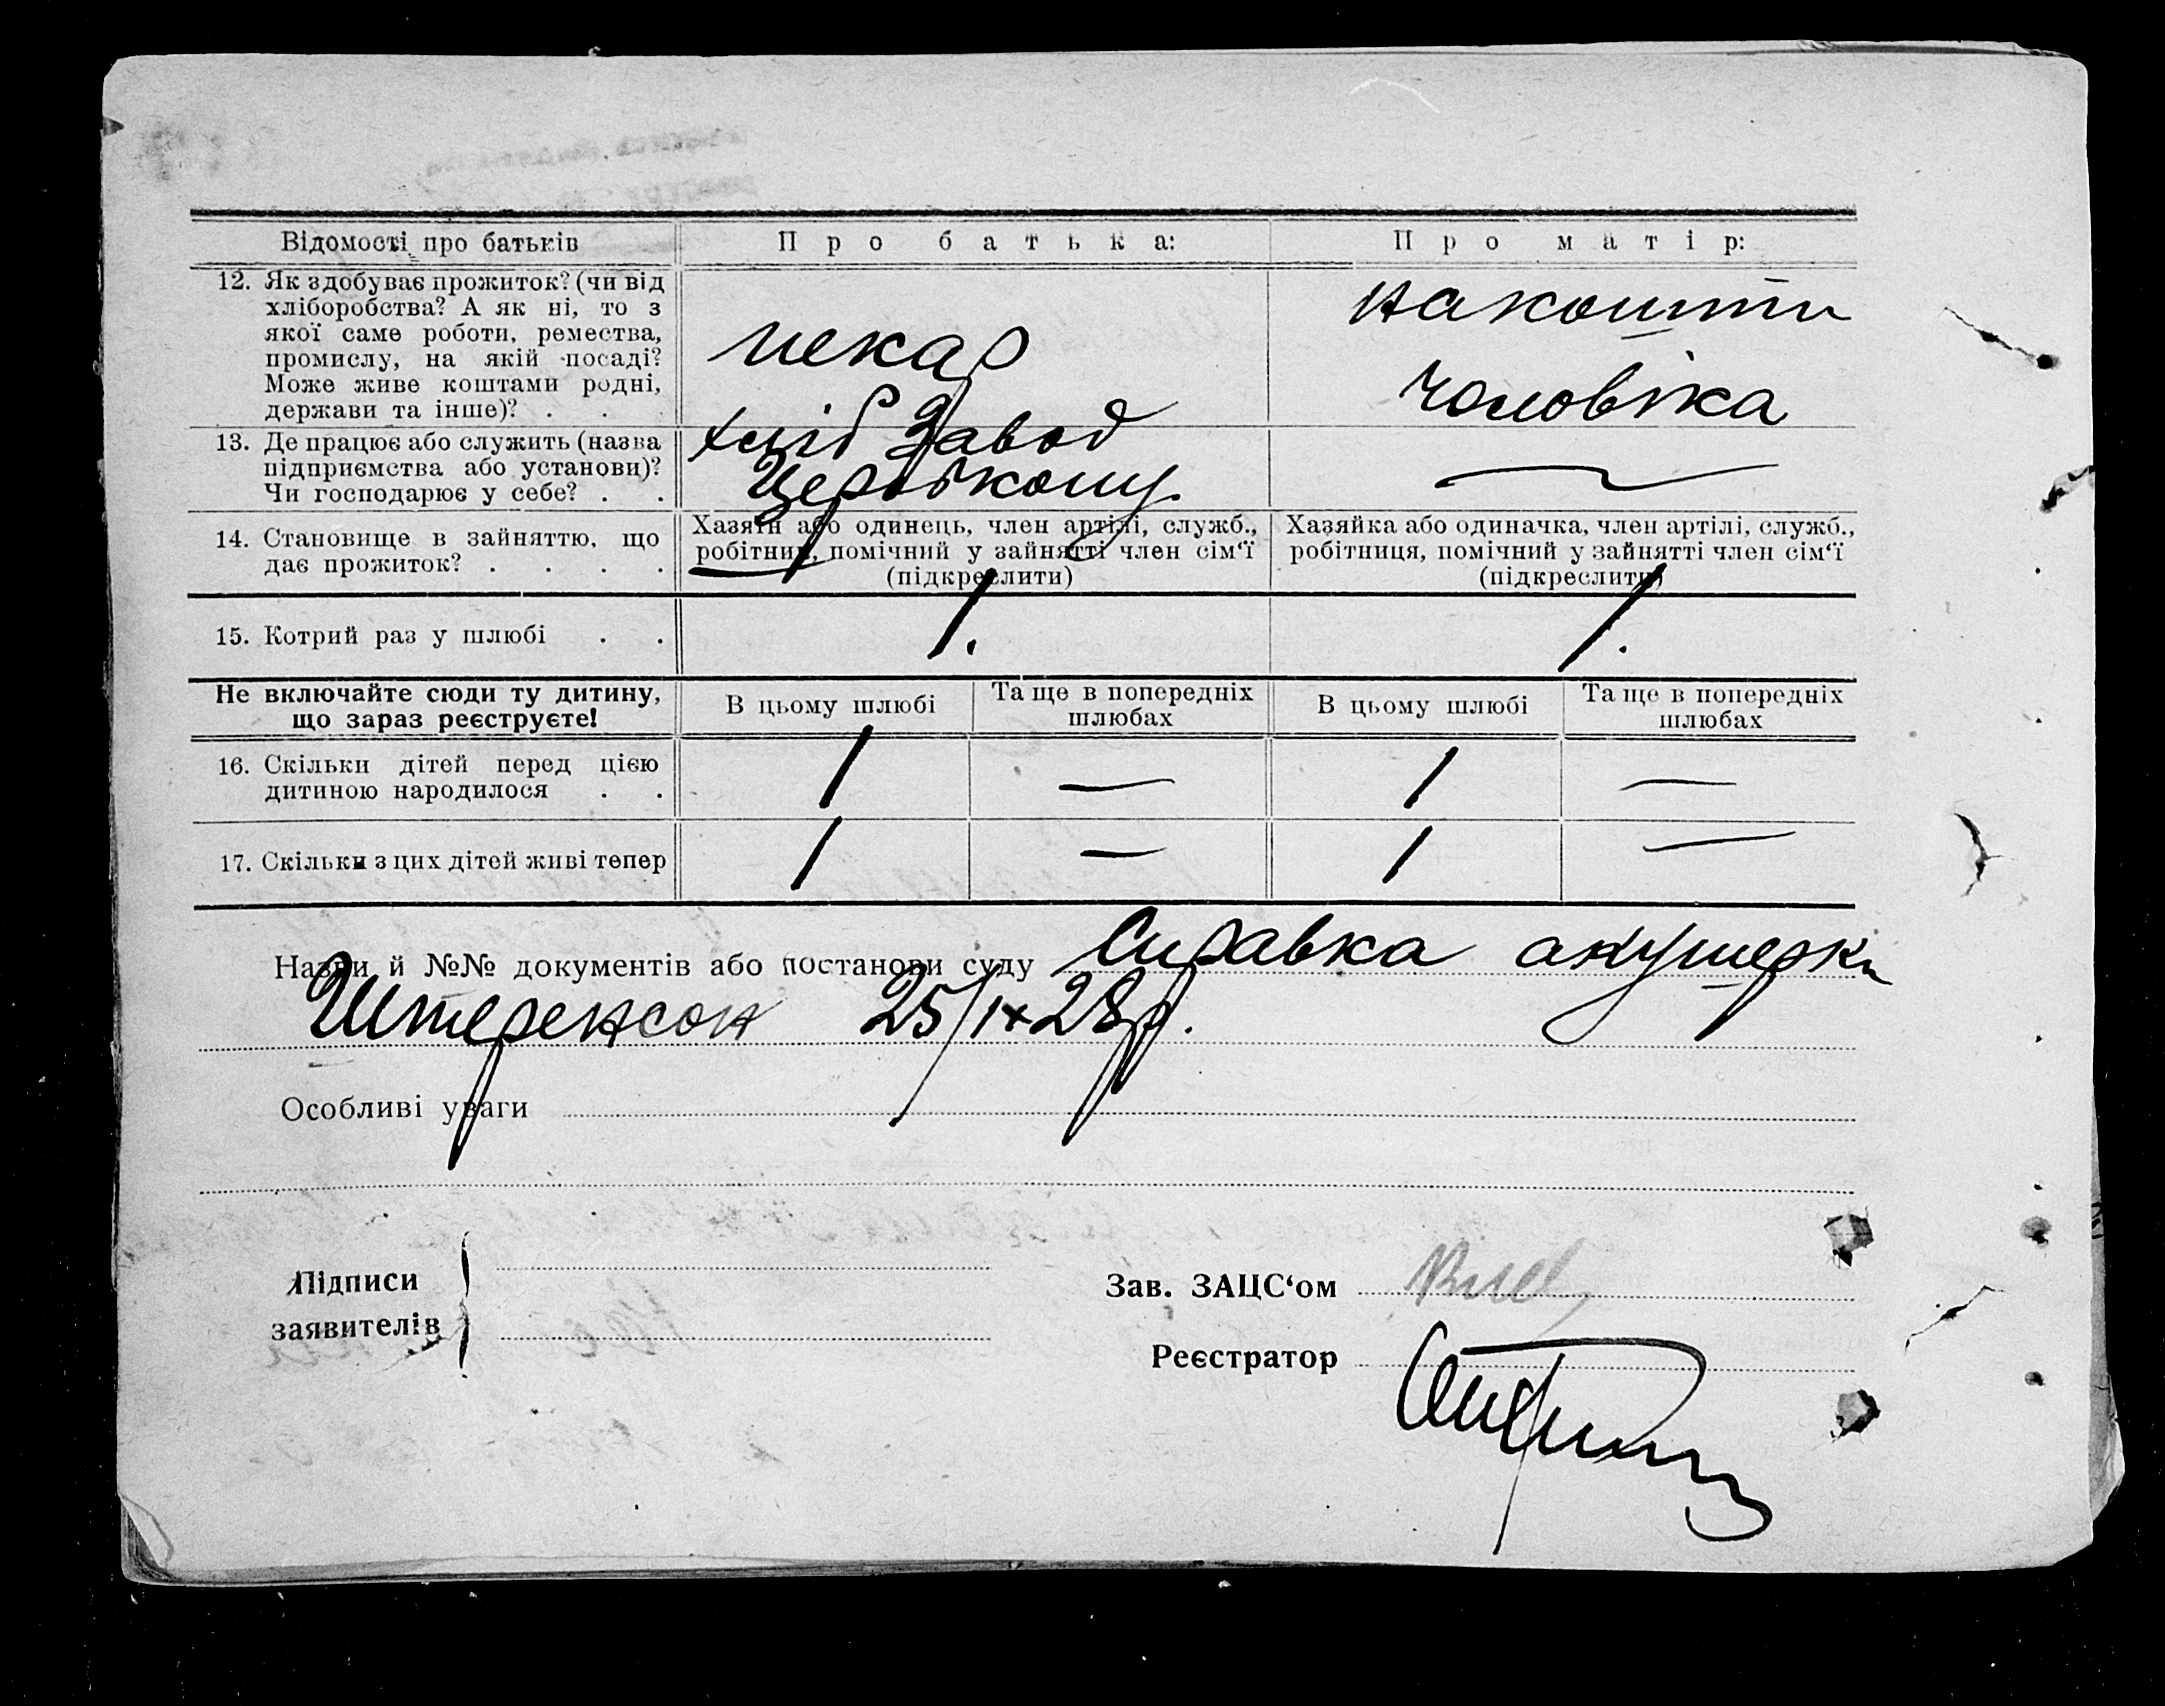 Відомості про батьків
Про батька:
Про матір:
12. Як здобуває прожиток? (чи від
хліборобства? А як ні, то з
якої саме роботи, ремества,
промислу, на якій посаді?
Може живе коштами родні,
держави та інше)? . .
пекар
на кошти
чоловіка
13. Де працює або служить (назва
підприємства або установи)?
Чи господарює у себе? . .
хліб завод
Церобкоопу
14. Становище в зайняттю, що
дає прожиток? . . . .
Хазяїн або одинець, член артілі, служб.,
робітник, помічний у зайнятті член сім‘ї
(підкреслити)
Хазяйка або одиначка, член артілі, служб.,
робітниця, помічний у зайнятті член сім‘ї
(підкреслити)
15. Котрий раз у шлюбі . .
1.
1.
Не включайте сюди ту дитину,
що зараз реєструєте!
В цьому шлюбі
Та ще в попередніх
шлюбах
В цьому шлюбі
Та ще в попередніх
шлюбах
16. Скільки дітей перед цією
дитиною народилося . .
1 — 1 —
17. Скільки з цих дітей живі тепер
1 — 1 —
Назви й №№ документів або постанови суду Справка акушерки
Штеренсон 25/IX 28 р.
Особливі уваги
Підписи
заявителів
Зав. ЗАЦС‘ом
Реєстратор